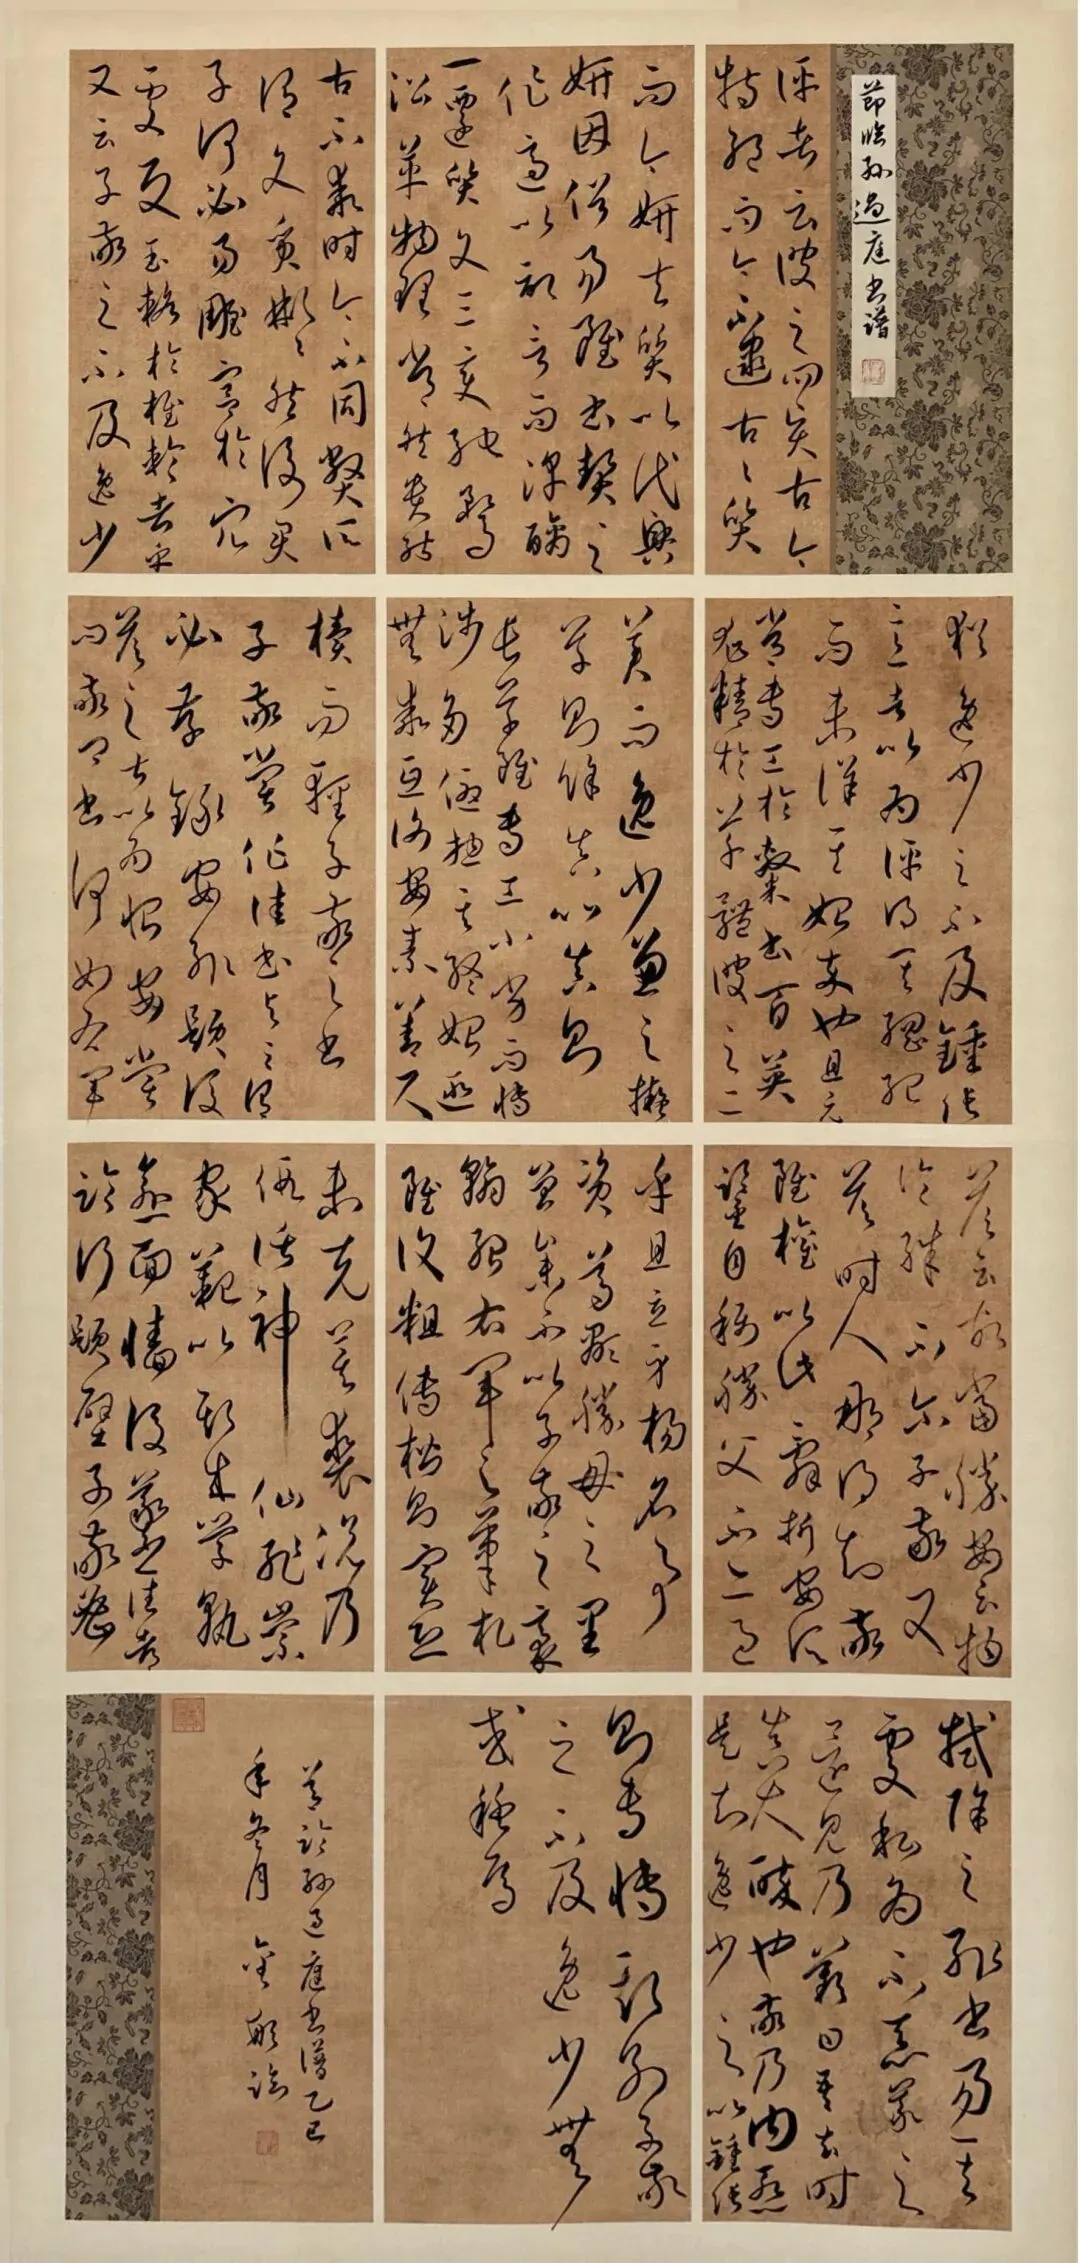 節臨孫過庭書譜
評者云彼之四賢古今
特絕而今不逮古古質
而今妍夫質以代興
妍因俗易雖書契之
作適以記言而淳醨
一遷質文三變馳騖
沿革物理常然貴能
古不乖時今不同弊所
謂文質彬彬然後君
子何必易雕宮於穴
處反玉輅於椎輪者乎
又云子敬之不及逸少
猶逸少之不及鍾張
意者以為評得其綱紀
而未詳其始卒也且元
常專工於隸書百英
尤精於草體彼之二
美而逸少兼之擬
草則餘真比真則
長草雖專工小劣而博
涉多優摠其終始匪
無乖互謝安素善尺
櫝而輕子敬之書
子敬嘗作佳書與之謂
必存錄安輒題後
答之甚以為恨安嘗
問敬卿書何如右軍
答云故當勝安云物
論殊不爾子敬又
答時人那得知敬
雖權以此辭折安所
鑒自稱勝父不亦過
乎且立身揚名事
資尊顯勝母之里
曾參不以子敬之豪
翰紹右軍之筆札
雖復粗傳楷則實恐
未克箕裘況乃
假託神仙恥崇
家範以斯成學孰
愈面牆後羲之往都
臨行題壁子敬密
拭除之輒書易其
處私為不惡羲之
還見乃嘆曰吾去時
真大醉也敬乃內慚
是知逸少之比鍾張
則專博斯別子敬
之不及逸少無
或疑焉
節臨孫過庭書譜乙巳
年冬月 臨